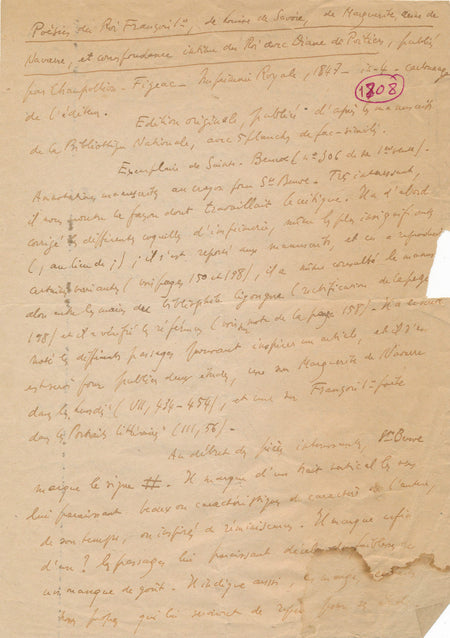 Poésies du Roi François Ier, de Louise de Savoie, de Marguerite, reine de
Navarre, et correspondance intime du Roi avec Diane de Poitiers, publiées
par Champollion-Figeac – Imprimerie Royale, 1847 – in-4 – cartonnage
de l'éditeur.
1808
Edition originale, publiée d'après les manuscrits
de la Bibliothèque Nationale, avec 5 planches de fac-similés.
Exemplaire de Sainte-Beuve (n° 306 de sa 1ère vente).
Annotations manuscrites au crayon par Ste Beuve. Très intéressant,
il nous montre la façon dont travaillait le critique. Il a d'abord
corrigé les différentes coquilles d'imprimerie, même les plus insignifiantes
(, au lieu de ;) ; il s'est reporté aux manuscrits, et en a reproduit
certaines variantes (voir pages 150 et 198), il a même consulté le manuscrit
alors entre les mains du bibliophile Cigongne (rectification de la page
198) et il a vérifié les références (voir note de la page 158). Il a ensuite
noté les différents passages pouvant inspirer un article, et il s'en
est servi pour publier deux études, une sur Marguerite de Navarre
dans les Lundis (VII, 434-454), et une sur François Ier poète
dans les Portraits littéraires (III, 56).
Au début des pièces intéressantes, Ste Beuve
marque le signe #. Il marque d'un trait vertical les vers
lui paraissant beaux ou caractéristiques du caractère de l'auteur,
de son temps, ou inspirés de réminiscences. Il marque enfin
d'un ? les passages lui paraissant
un manque de goût. Il indique aussi, en marge,
qui lui